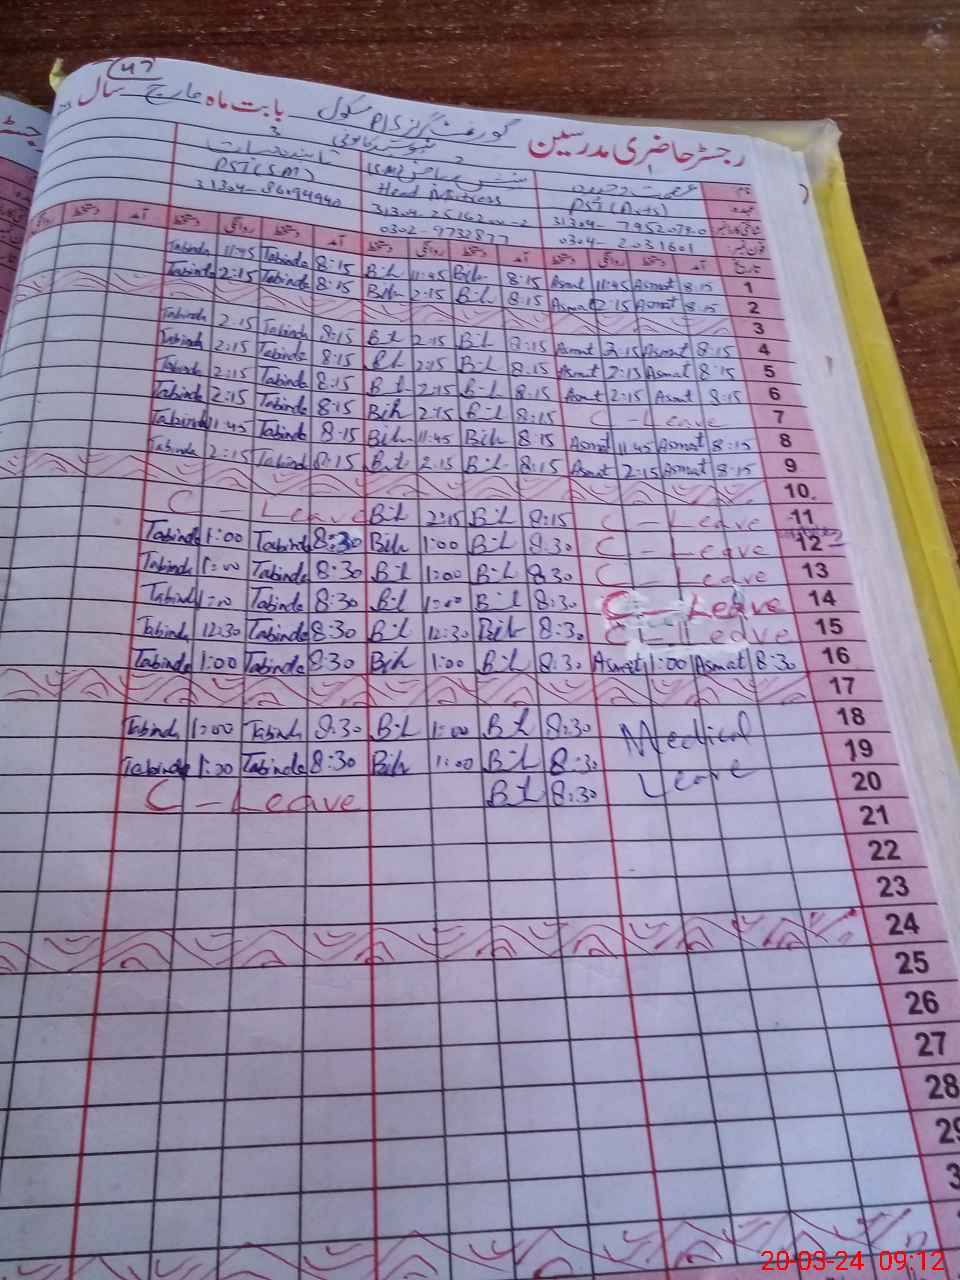 رجسٹر حاضری مدرسین گورنمنٹ گرلز پرائمری سکول بابت ماہ مارچ سال
نام
PST (Arts) Head Mistress PST (S.M)
31304-7952079-0
0304-2031601 0302-9732877
تاریخ آمد دستخط روانگی دستخط آمد دستخط روانگی دستخط آمد دستخط روانگی دستخط آمد دستخط روانگی
Tabinda 11:45 Tabinda 8:15 Bih 11:45 Bih 8:15 Asmat 11:45 Asmat 8:15 1
Tabinda 2:15 Tabinda 8:15 Bih 2:15 Bih 8:15 Asmat 2:15 Asmat 8:15 2
3
Tabinda 2:15 Tabinda 8:15 Bih 2:15 Bih 8:15 Asmat 2:15 Asmat 8:15 4
Tabinda 2:15 Tabinda 8:15 Bih 2:15 Bih 8:15 Asmat 2:15 Asmat 8:15 5
Tabinda 2:15 Tabinda 8:15 Bih 2:15 Bih 8:15 Asmat 2:15 Asmat 8:15 6
Tabinda 2:15 Tabinda 8:15 Bih 2:15 Bih 8:15 C - Leave 7
Tabinda 11:45 Tabinda 8:15 Bih 11:45 Bih 8:15 Asmat 11:45 Asmat 8:15 8
Tabinda 2:15 Tabinda 8:15 Bih 2:15 Bih 8:15 Asmat 2:15 Asmat 8:15 9
10
C - Leave Bih 2:15 Bih 8:15 C - Leave 11
Tabinda 1:00 Tabinda 8:30 Bih 1:00 Bih 8:30 C - Leave 12
Tabinda 1:00 Tabinda 8:30 Bih 1:00 Bih 8:30 C - Leave 13
Tabinda 1:00 Tabinda 8:30 Bih 1:00 Bih 8:30 C - Leave 14
Tabinda 12:30 Tabinda 8:30 Bih 12:30 Bih 8:30 C - Leave 15
Tabinda 1:00 Tabinda 8:30 Bih 1:00 Bih 8:30 Asmat 1:00 Asmat 8:30 16
17
Tabinda 1:00 Tabinda 8:30 Bih 1:00 Bih 8:30 Medical 18
Tabinda 1:00 Tabinda 8:30 Bih 1:00 Bih 8:30 Leave 19
C - Leave Bih 8:30 20
21
22
23
24
25
26
27
28
29
3
20-03-24 09:12